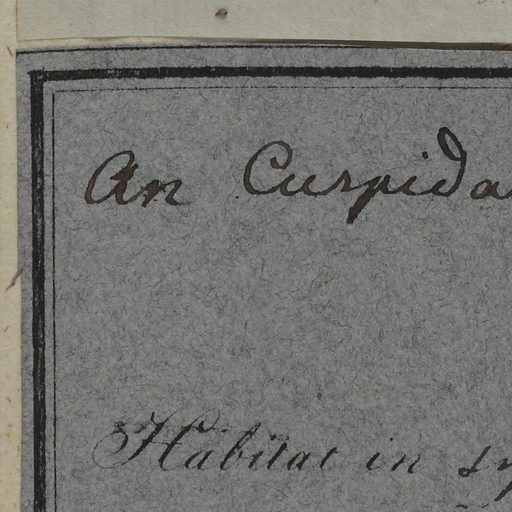 An Cuspida
Habitat in sy